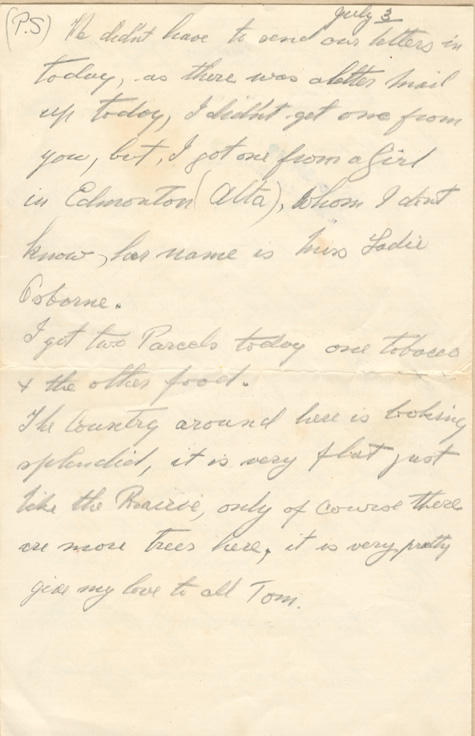 July 3
(P.S) We didn't have to send our letters in
today, as there was a letter mail
up today, I didn't get one from
you, but, I got one from a Girl
in Edmonton (Alta), whom I don't
know, her name is Miss Sadie
Osborne.
I got two Parcels today one tobacco
& the other food.
The Country around here is looking
splendid, it is very flat just
like the Prairie, only of course there
are more trees here, it is very pretty
give my love to all Tom.